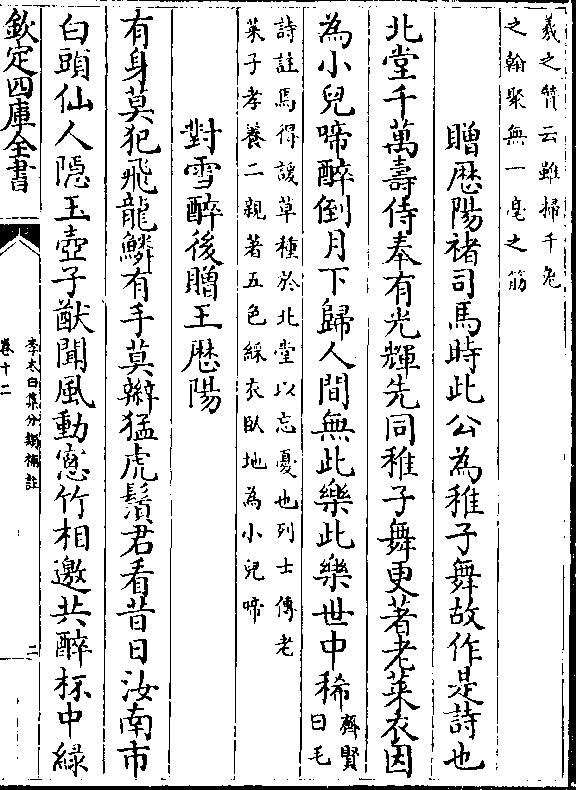 羲之賛云雖掃千兔
之翰聚無一毫之筋
贈歴陽禇司馬時此公為稚子舞故作是詩也
北堂千萬壽侍奉有光輝先同稚子舞更著老莱衣因
為小兒啼醉倒月下歸人間無此樂此樂世中稀
齊賢
曰毛
詩註焉得諼草種於北堂以忘憂也列士傳老
莱子孝養二親著五色綵衣臥地為小兒啼
對雪醉後贈王歴陽
有身莫犯飛龍鱗有手莫辮猛虎鬚君看昔日汝南市
白頭仙人隠玉壺子猷聞風動窓竹相邀共醉杯中緑
欽定四庫全書
李太白集分類補註
卷十二
二